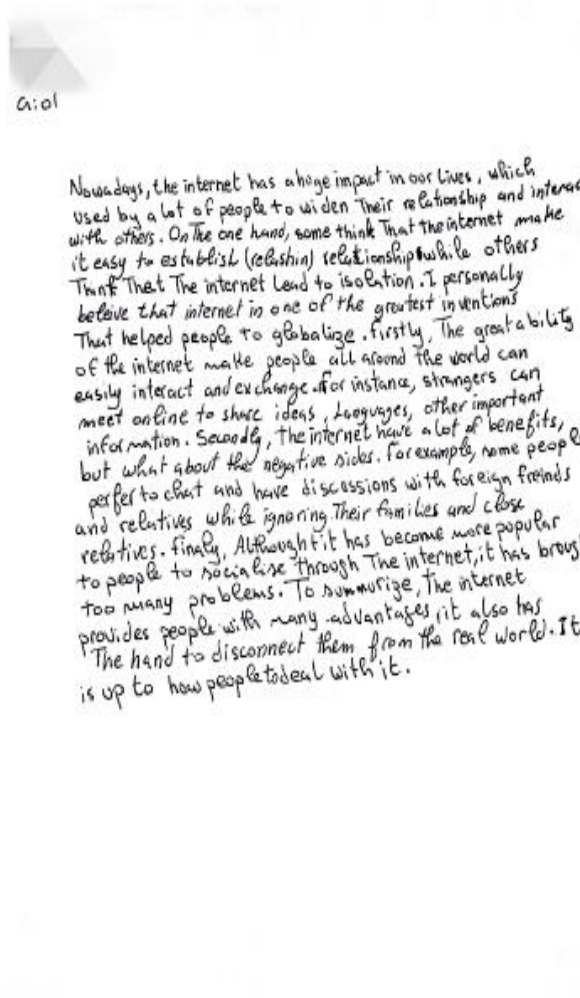 G:01
Nowadays, the internet has a huge impact in our lives, which
used by a lot of people to widen Their relationship and interac
with others. On The one hand, some think That the internet make
it easy to establish (relashin) relationship while others
Think That The internet Lead to isolation. I personally
beleive that internet in one of the greatest inventions
That helped people to globalize. firstly, The great ability
of the internet make people all around the world can
easily interact and exchange. For instance, strangers can
meet online to share ideas, Languages, other important
information. Secondly, The internet have a lot of benefits,
but what about the negative sides. For example, some people
perfer to chat and have discussions with foreign freinds
and relatives while ignoring Their families and close
relatives. finaly, Although it has become more popular
to people to socialise through The internet, it has broug
too many problems. To summurize, The internet
provides people with many advantages, it also has
The hand to disconnect them from the real world. It
is up to how people to deal with it.